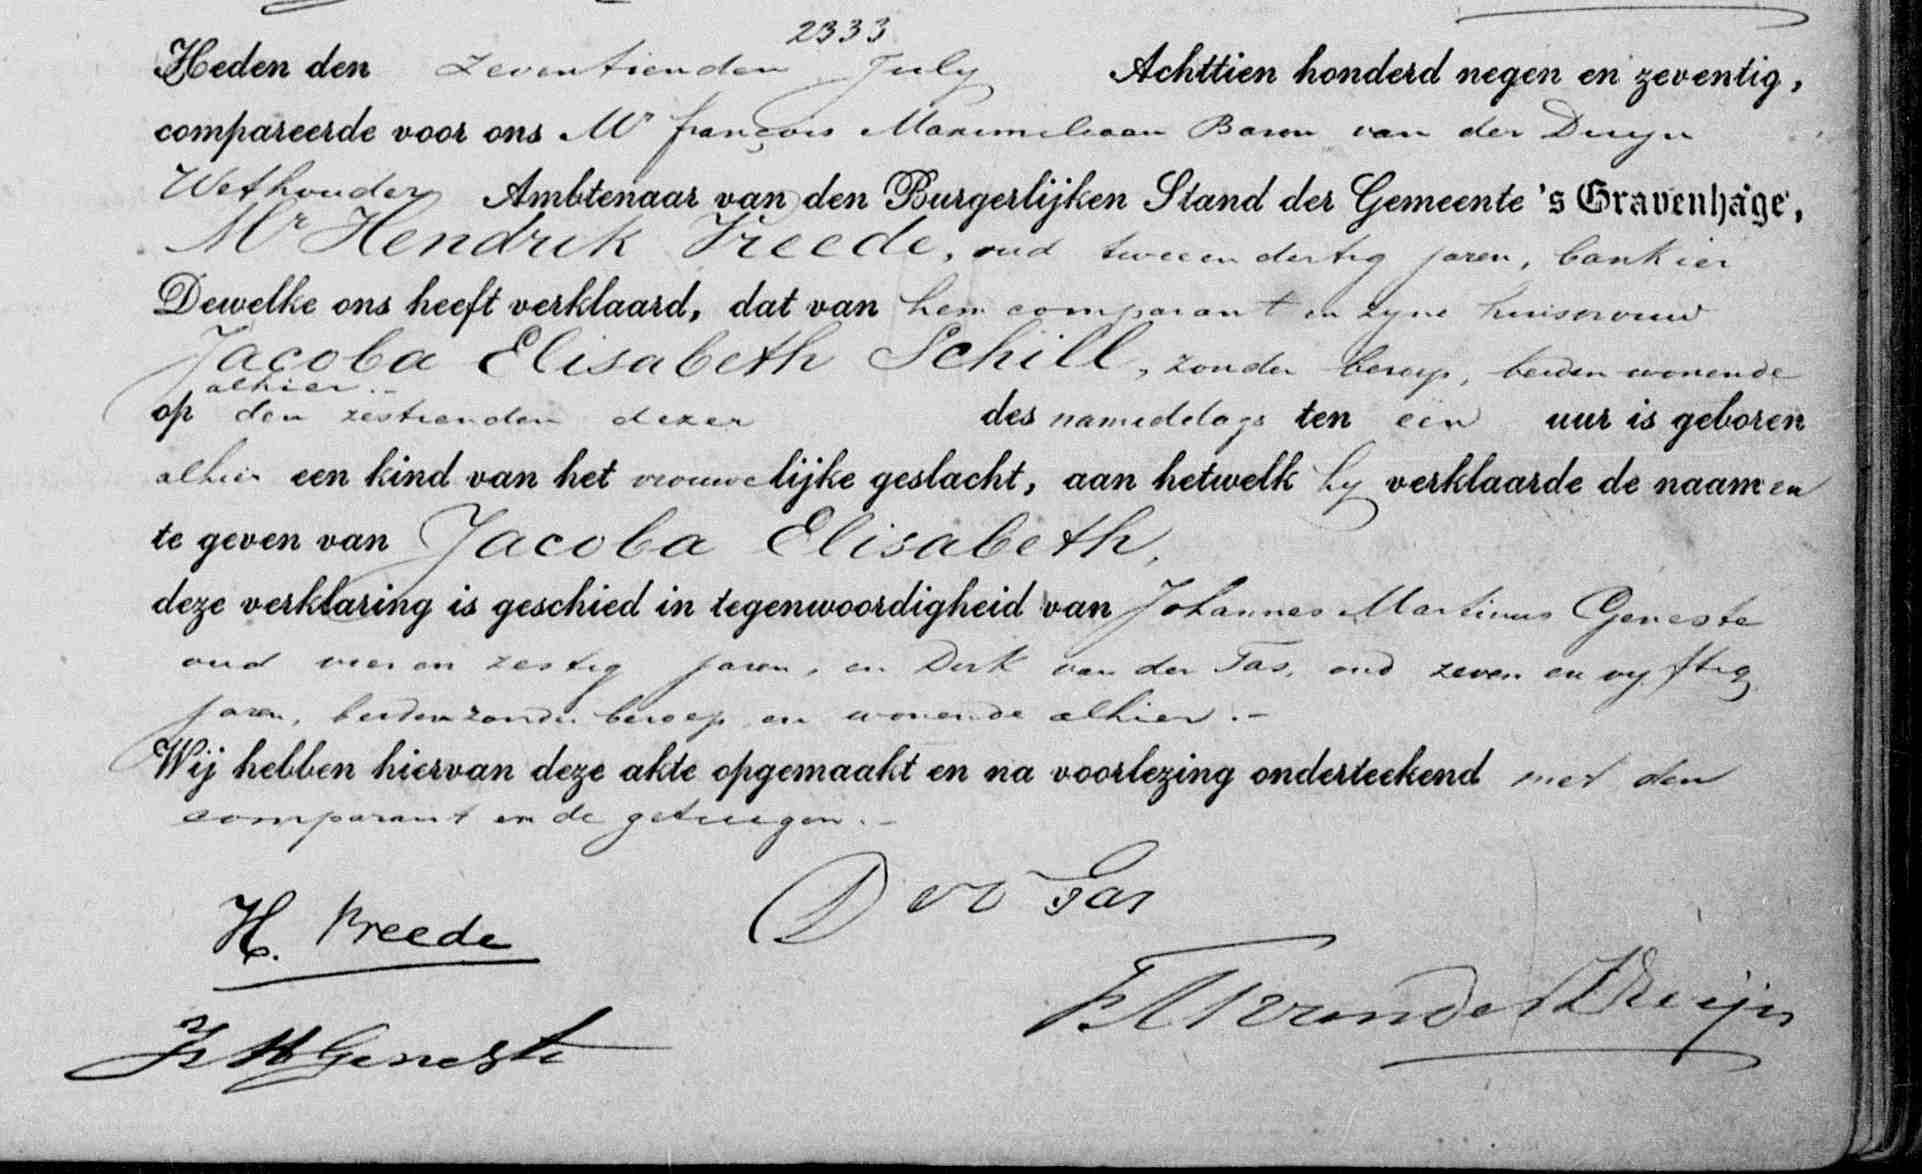 2333
Heden den zeventienden July Achttien honderd negen en zeventig,
compareerde voor ons Mr François Maximiliaan Baron van der Duyn
Wethouder Ambtenaar van den Burgerlijken Stand der Gemeente 's Gravenhage,
Mr Hendrik Vreede, oud tweeen dertig jaren, bankier
Dewelke ons heeft verklaard, dat van hem comparant en zyne huisvrouw
Jacoba Elisabeth Schill, zonder beroep, beiden wonende
alhier.-
op den zestienden dezer des namiddags ten een uur is geboren
alhier een kind van het vrouwelijke geslacht, aan hetwelk hy verklaarde de naamen
te geven van Jacoba Elisabeth,
deze verklaring is geschied in tegenwoordigheid van Johannes Martinus Geneste
oud vier en zestig jaren, en Dirk van der Tas, oud zeven en vyftig
jaren, beiden zonder beroep en wonende alhier.-
Wij hebben hiervan deze akte opgemaakt en na voorlezing onderteekend met den
comparant en de getuigen.-
D v d Tas
H. Vreede
F M van der Duijn
J M Geneste